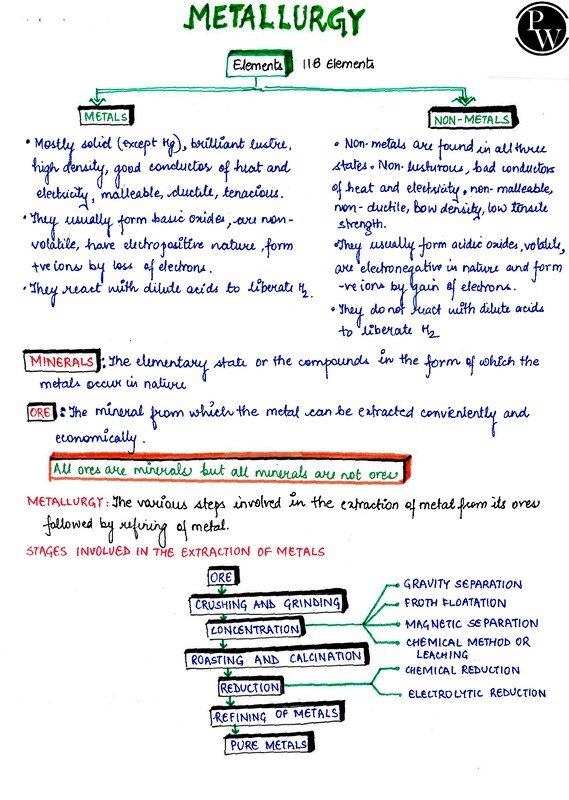 METALLURGY
PW
Elements 118 Elements
METALS
• Mostly solid (except Hg), brilliant lustre,
high density, good conductor of heat and
electricity, malleable, ductile, tenacious.
• They usually form basic oxides, are non-
volatile, have electropositive nature, form
+ve ions by loss of electrons.
• They react with dilute acids to liberate H₂.
NON-METALS
• Non-metals are found in all three
states. Non-lusturous, bad conductors
of heat and electricity, non-malleable,
non-ductile, low density, low tensile
strength.
• They usually form acidic oxides, volatile,
are electronegative in nature and form
-ve ions by gain of electrons.
• They do not react with dilute acids
to liberate H₂
MINERALS : The elementary state or the compounds in the form of which the
metals occur in nature
ORE : The mineral from which the metal can be extracted conviently and
economically.
All ores are minerals but all minerals are not ores
METALLURGY: The various steps involved in the extraction of metal from its ores
followed by refining of metal.
STAGES INVOLVED IN THE EXTRACTION OF METALS
ORE
CRUSHING AND GRINDING
CONCENTRATION
GRAVITY SEPARATION
FROTH FLOATATION
MAGNETIC SEPARATION
CHEMICAL METHOD OR
LEACHING
ROASTING AND CALCINATION
REDUCTION
CHEMICAL REDUCTION
ELECTROLYTIC REDUCTION
REFINING OF METALS
PURE METALS